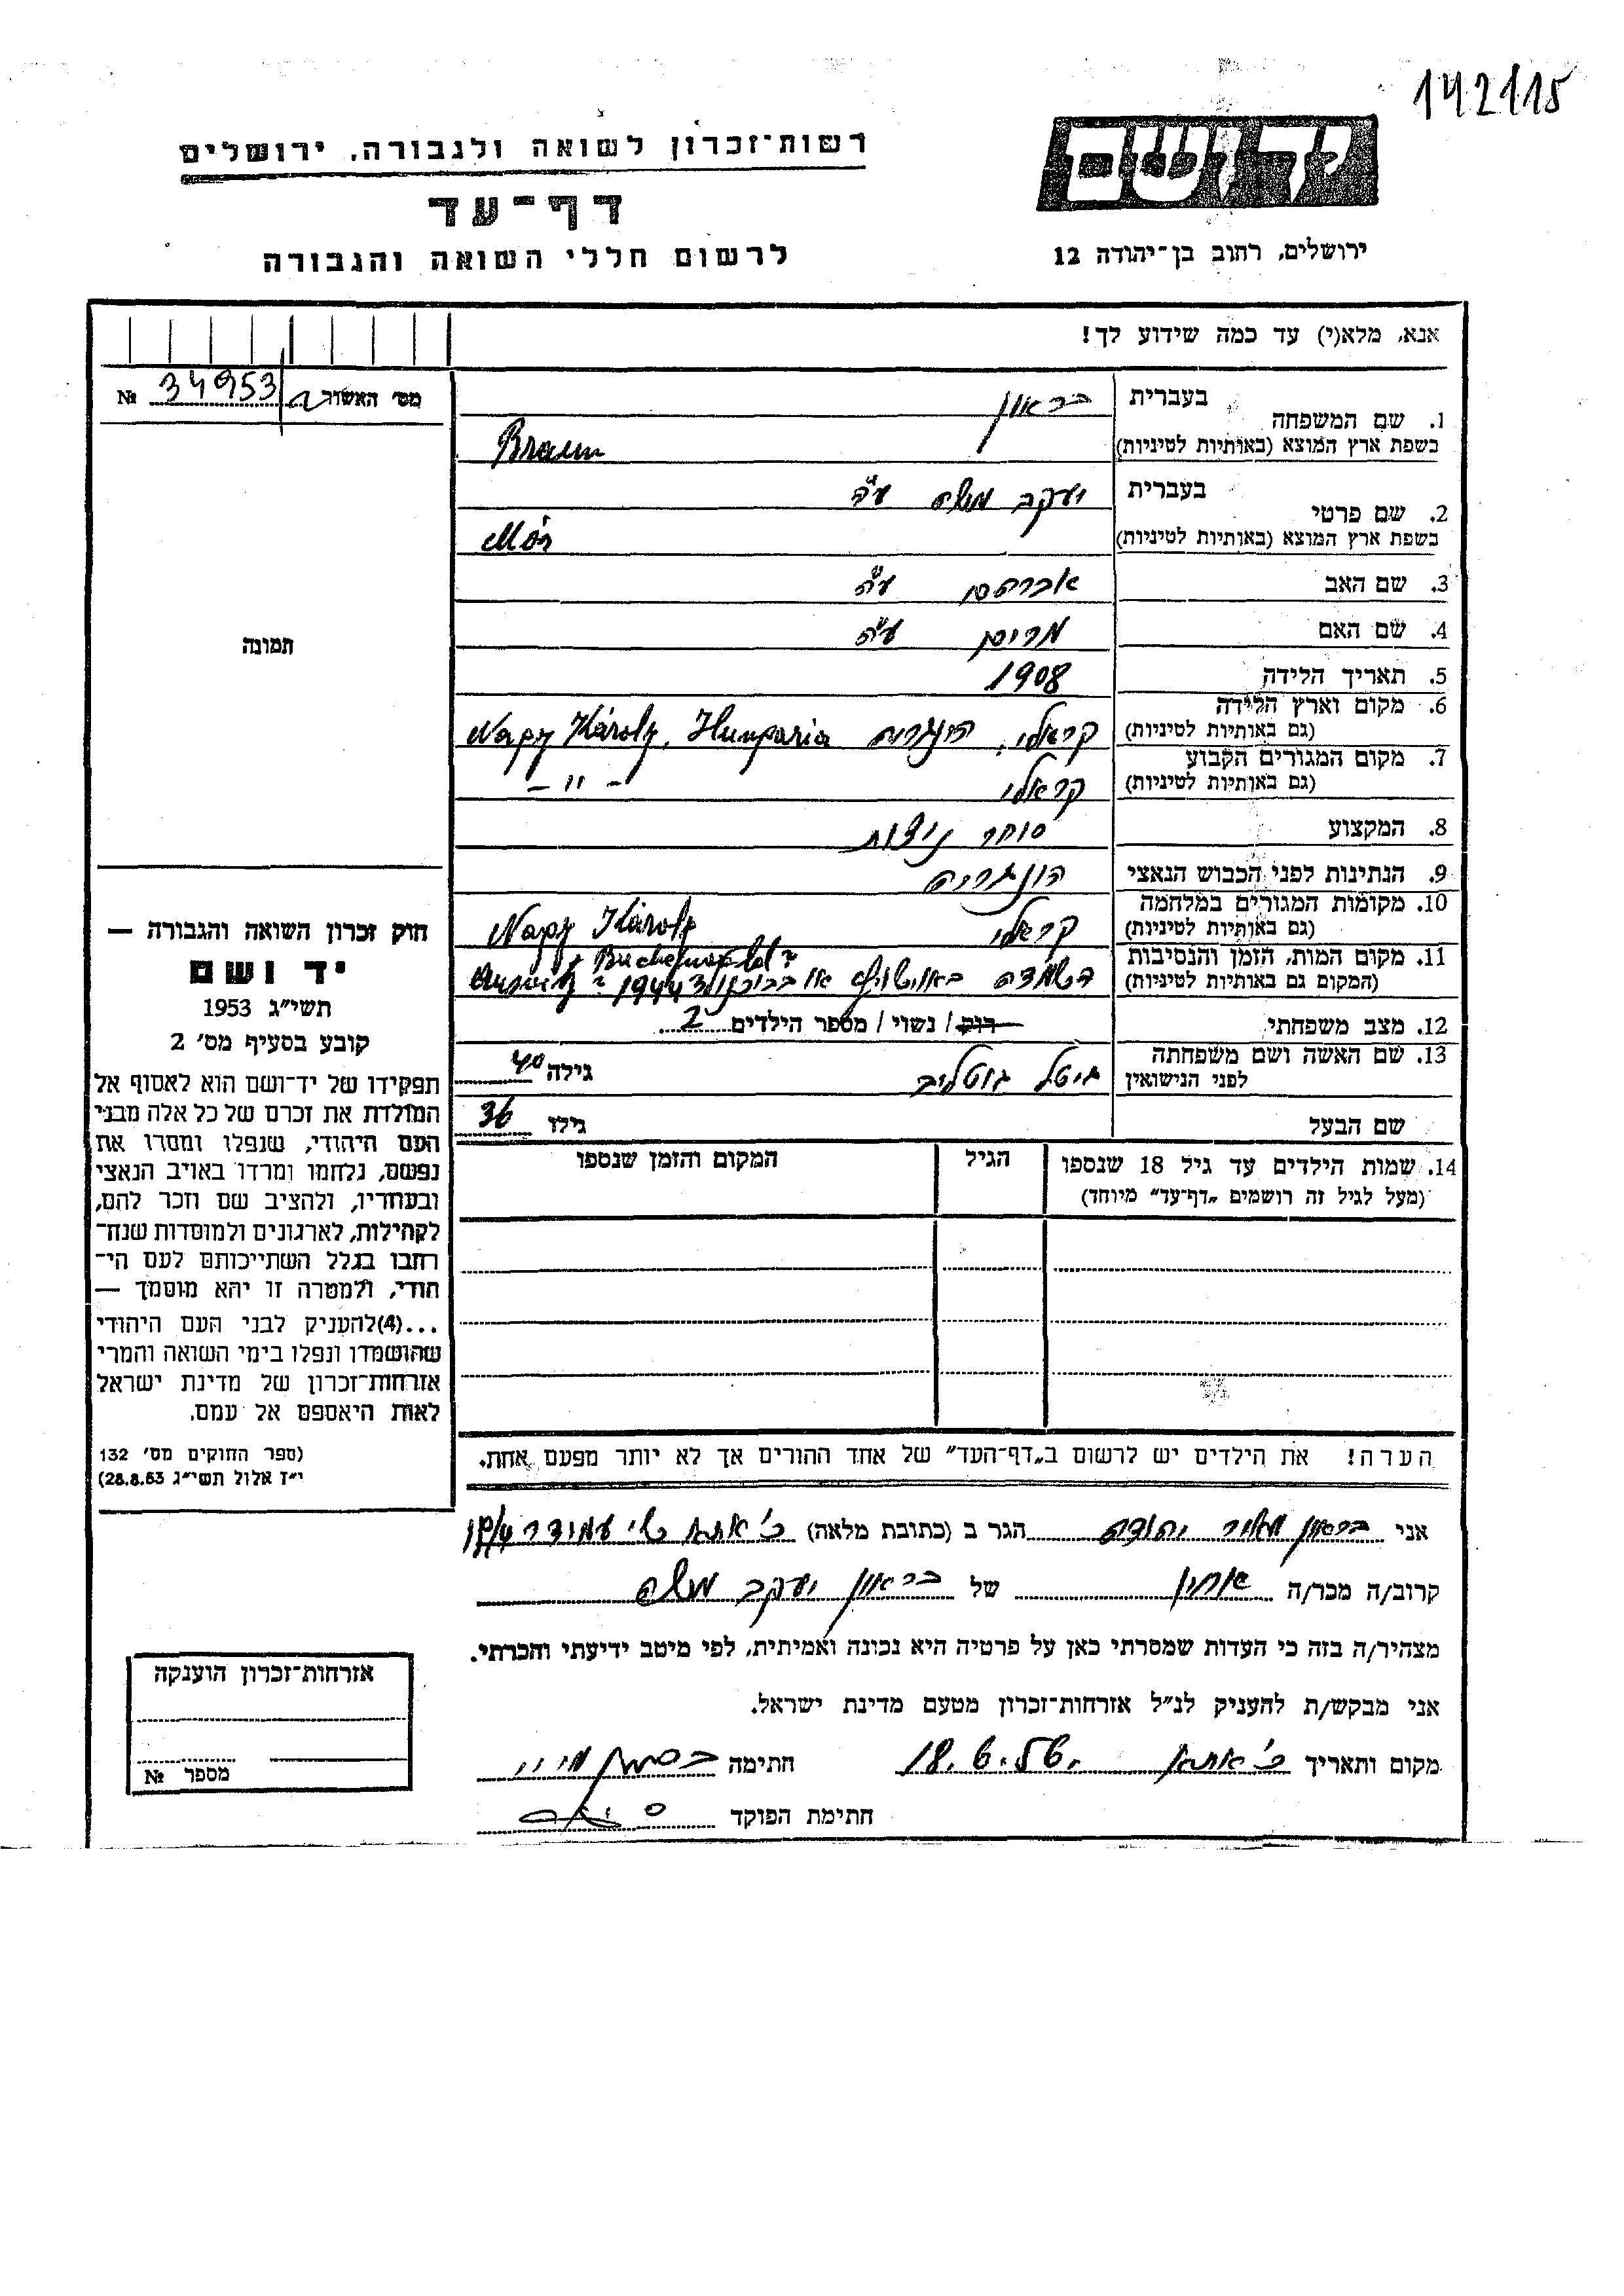 142115
יד ושם
רשות־זכרון לשואה ולגבורה, ירושלים
דף־עד
לרשום חללי השואה והגבורה
ירושלים, רחוב בן־יהודה 12
אנא, מלא(י) עד כמה שידוע לך!
מס׳ האשור № 34953
1. שם המשפחה
בעברית בראון
בשפת ארץ המוצא (באותיות לטיניות) Braun
2. שם פרטי
בעברית יעקב משה ע״ה
בשפת ארץ המוצא (באותיות לטיניות) Mór
3. שם האב אברהם ע״ה
4. שם האם מרים ע״ה
5. תאריך הלידה 1908
6. מקום וארץ הלידה
(גם באותיות לטיניות) קראלי, הונגריה Nagy Károly, Hungaria
7. מקום המגורים הקבוע
(גם באותיות לטיניות) קראלי - " -
8. המקצוע סוחר נוצות
9. הנתינות לפני הכבוש הנאצי הונגריה
10. מקומות המגורים במלחמה
(גם באותיות לטיניות) קראלי Nagy Károly
11. מקום המות, הזמן והנסיבות
(המקום גם באותיות לטיניות) באושויץ או בבוכנולד 1944
12. מצב משפחתי רווק / נשוי / מספר הילדים 2
13. שם האשה ושם משפחתה
לפני הנישואין גיטל גוטליב גילה 40
שם הבעל גילו 36
14. שמות הילדים עד גיל 18 שנספו
(מעל לגיל זה רושמים „דף־עד״ מיוחד)
הגיל
המקום והזמן שנספו
הערה! את הילדים יש לרשום ב„דף־העד״ של אחד ההורים אך לא יותר מפעם אחת.
תמונה
חוק זכרון השואה והגבורה —
יד ושם
תשי״ג 1953
קובע בסעיף מס׳ 2
תפקידו של יד־ושם הוא לאסוף אל
המולדת את זכרם של כל אלה מבני
העם היהודי, שנפלו ומסרו את
נפשם, נלחמו ומרדו באויב הנאצי
ובעוזריו, ולהציב שם וזכר להם,
לקהילות, לארגונים ולמוסדות שנח־
רחבו בגלל השתייכותם לעם הי־
הודי, ולמטרה זו יהא מוסמך —
...(4)להעניק לבני העם היהודי
שהושמדו ונפלו בימי השואה והמרי
אזרחות־זכרון של מדינת ישראל
לאות היאספם אל עמם.
(ספר החוקים מס׳ 132
י״ז אלול תשי״ג 28.8.53)
אני בראון מאיר יהודה הגר ב (כתובת מלאה) ק׳ אתא
קרוב/ה מכר/ה אחיו של בראון יעקב משה
מצהיר/ה בזה כי העדות שמסרתי כאן על פרטיה היא נכונה ואמיתית, לפי מיטב ידיעתי והכרתי.
אני מבקש/ת להעניק לנ״ל אזרחות־זכרון מטעם מדינת ישראל.
מקום ותאריך ק׳ אתא חתימה
חתימת הפוקד
אזרחות־זכרון הוענקה
מספר №